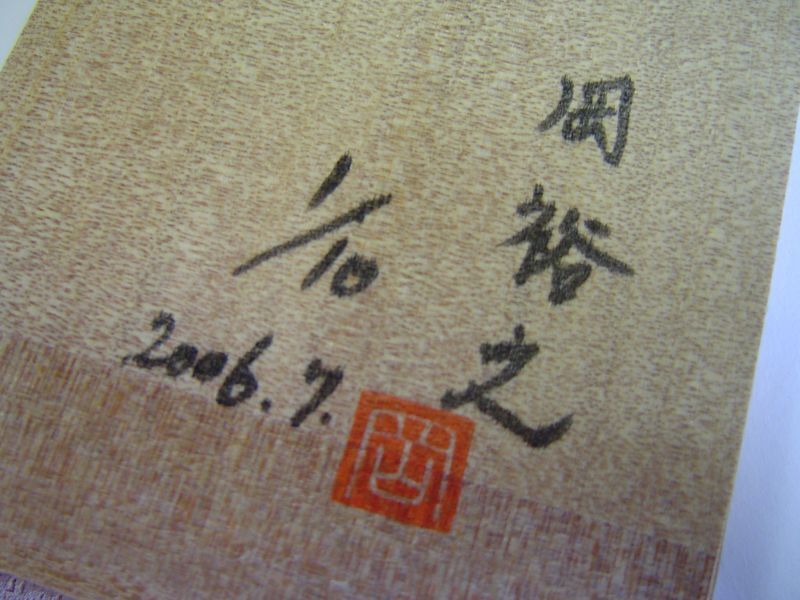 岡裕之
1/10
2006.7.